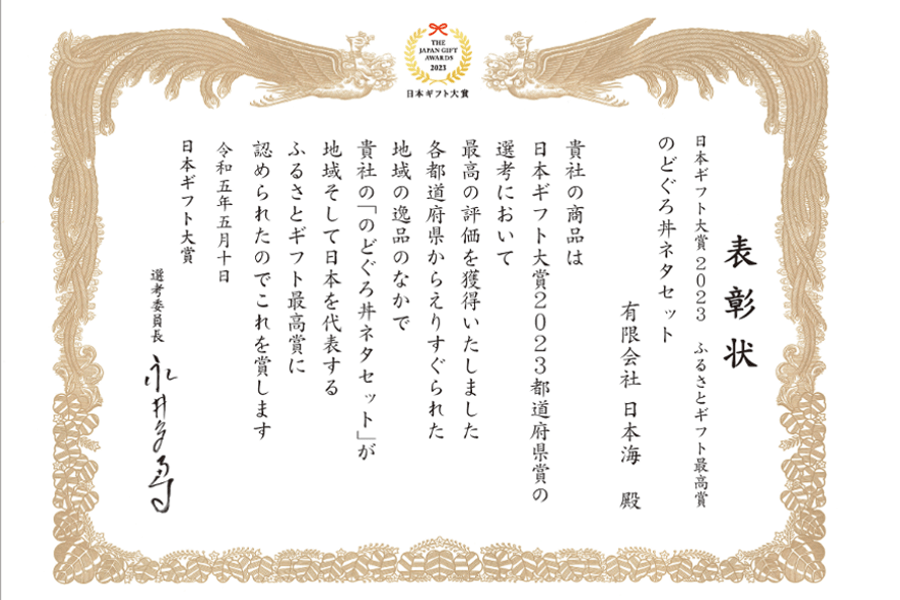 THE
JAPAN GIFT
AWARDS
2023
日本ギフト大賞
表彰状
日本ギフト大賞2023 ふるさとギフト最高賞
のどぐろ丼ネタセット
有限会社 日本海 殿
貴社の商品は
日本ギフト大賞2023都道府県賞の
選考において
最高の評価を獲得いたしました
各都道府県からえりすぐられた
地域の逸品のなかで
貴社の「のどぐろ丼ネタセット」が
地域そして日本を代表する
ふるさとギフト最高賞に
認められたのでこれを賞します
令和五年五月十日
日本ギフト大賞
選考委員長